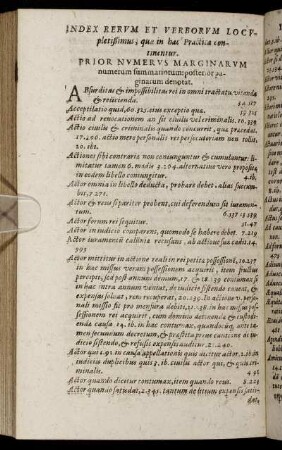 INDEX RERVM ET VERBORVM LOCV-
pletissimus; quæ in hac Practica con-
tinentur.
PRIOR NVMERVS MARGINARVM
numerum summariorum: posterior pa-
ginarum denotat.
ABsurditas & impossibilitas rei in omni tractatu vitanda
& reiicienda. 54.117
Acceptilatio quid,60.125. eius exceptio qua. 19.325
Actio ad renouationem an sit ciuilis vel criminalis.10.70
Actio ciuilis & criminalis quando concurrit, qua præcedat.
17.200. actio mere personalis rei persecutoriam non tollit.
20. ibi.
Actiones sibi contraria non coniunguntur & cumulantur. li-
mitatur tamen 6. modis 3.204. alternatiue vero proposita
in eodem libello coniungitur. 4.ib.
Actor omnia in libello deducta, probare debet. alias succum-
bit.7.271.
Actor & reus si pariter probent, cui deferendum sit iuramen-
tum. 6.337.13.339
Actor forum rei sequitur. 31.47
Actor in iudicio comparens, quomodo se habere debet. 7.219
Actor iuramenti calūnia recusans, ab actione sua cadit.14.
303
Actor mittitur in actione reali in rei petita possessionē, 10.237
in hac missus veram possessionem acquirit, item fructus
percipit, sed post annum demum, 17.& 18.239. excusamus si
in hac intra annum veniat, de iudicio sistendo caueat, &
expensas soluat, rem recuperat, 20.239. In actione v. perso-
nali missio fit pro mensura debiti, 21.238. in hac missus pos-
sessionem rei acquirit, cum dominio detinenda & custodi-
enda causa 24. ib. in hac contumax, quandocunq; ante ta-
men secundum decretum, & præstita prius cautione de iu-
dicio sistendo, & refusis expensis auditur. 21.240.
Actor quis.91. in causa appellationis quis dicitur actor, 2.ib. in
iudiciis duplicibus quis 3. ib. ciuilis actor qui, & quis cri-
minalis. 4.92
Actor quando dicatur contumax, item quando reus. 8.223
Actor quando satisdat, 2.595. tantum de litium expensis satis-
dat,